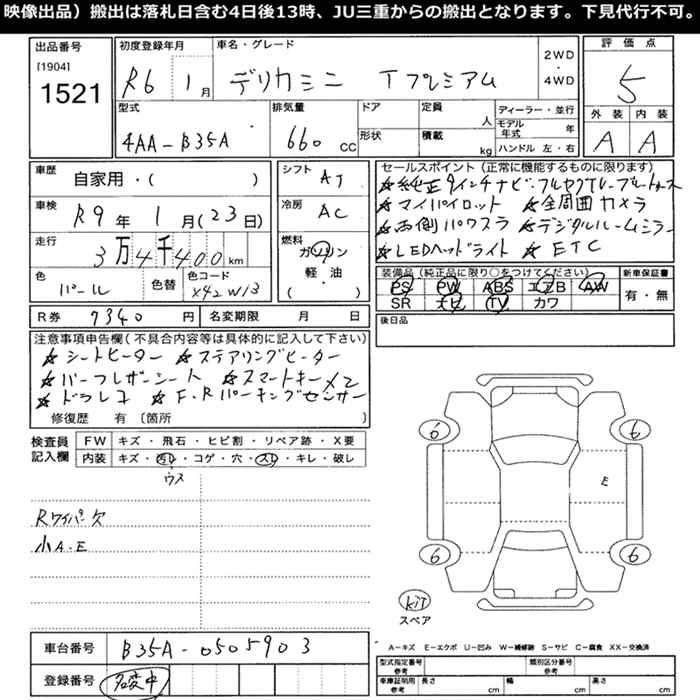 映像出品）搬出は落札日含む4日後13時、JU三重からの搬出となります。下見代行不可。
出品番号 [1904] 1521
初度登録年月 R6 1月
車名・グレード デリカミニ Tプレミアム 2WD・4WD
評価点 5
外装 内装 A A
型式 4AA-B35A
排気量 660 CC
ドア 形状
定員 人 積載 kg
ディーラー・並行
モデル年式 年
ハンドル 左・右
車歴 自家用・( )
シフト AT
車検 R9年 1月(23日)
冷房 AC
走行 3万4千400km
燃料 ガソリン 軽油 ( )
色 パール 色替 色コード X42W13
R券 7340円 名変期限 月 日
セールスポイント（正常に機能するものに限ります）
☆純正9インチナビ・フルセグTV・ブルートゥース
☆マイパイロット ☆全周囲カメラ
☆両側パワスラ ☆デジタルルームミラー
☆LEDヘッドライト ☆ETC
装備品（純正品に限り○をつけてください）
PS PW ABS エアB AW
SR ナビ TV カワ
新車保証書 有・無
後日品
注意事項申告欄（不具合内容等は具体的に記入して下さい）
☆シートヒーター ☆ステアリングヒーター
☆パーフレザーシート ☆スマートキー×2
☆ドラレコ ☆F.Rパーキングセンサー
修復歴 有 〔箇所 〕
検査員記入欄
FW キズ・飛石・ヒビ割・リペア跡・X要
内装 キズ・汚れ・コゲ・穴・スレ・キレ・破し
ウス
Rワイパー欠
小A.E
6 6
E
6 6
KIT
スペア
車台番号 B35A-0505903
登録番号 名変中
A-キズ E-エクボ U-凹み W-補修跡 S-サビ C-腐食 XX-交換済
型式指定番号 参考 類別区分番号 参考
車庫証明用 参考 長さ cm 幅 cm 高さ cm